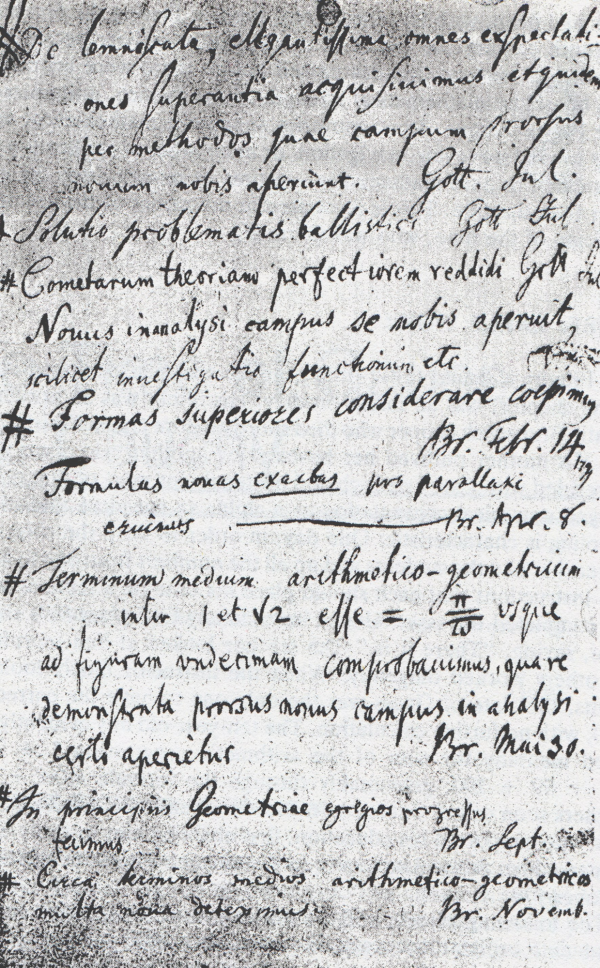 # De lemniscata, elegantissima omnes exspectati-
ones superantia acquisivimus et quidem
per methodos quae campum prorsus
novum nobis aperiunt. Gott. Jul.
# Solutio problematis ballistici Gott Jul
# Cometarum theoriam perfectiorem reddidi Gott Jul
Novus in analysi campus se nobis aperuit,
scilicet investigatio functionum etc.
# Formas superiores considerare coepimus
Br. Febr. 14
Formulas novas exactas pro parallaxi
eruimus Br. Apr. 8.
# Terminum medium arithmetico-geometricum
inter 1 et √2 esse = π/ϖ usque
ad figuram undecimam comprobavimus, quare
demonstrata prorsus novus campus in analysi
certo aperietur Br. Mai 30.
# In principiis Geometriae egregios progressus
fecimus Br. Sept.
# Circa terminos medios arithmetico-geometricos
multa nova deteximus. Br. Novemb.